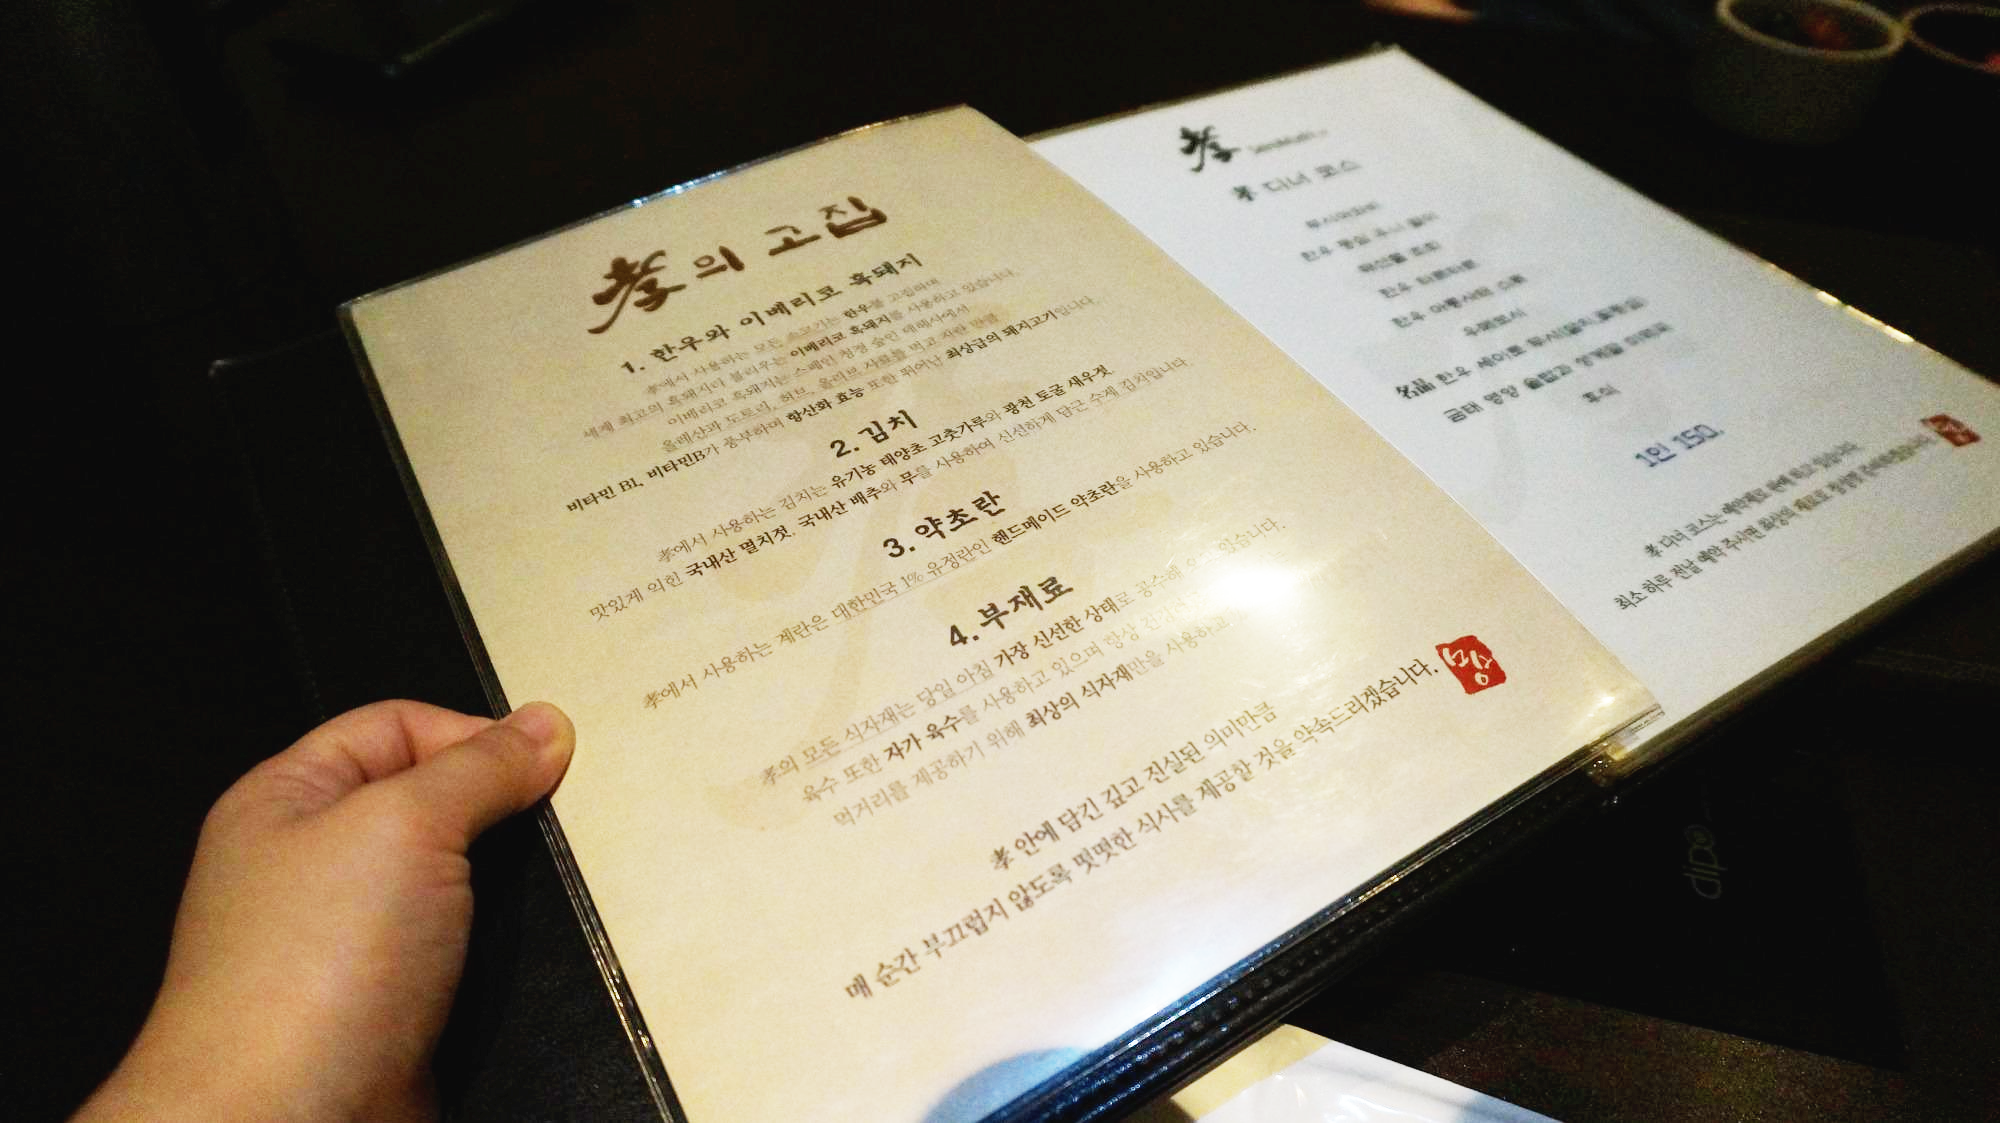 孝의 고집
1. 한우와 이베리코 흑돼지
孝에서 사용하는 모든 소고기는 한우를 고집하며
세계 최고의 흑돼지라 불리우는 이베리코 흑돼지를 사용하고 있습니다.
이베리코 흑돼지는 스페인 청정 숲인 데헤사에서
올레산과 도토리, 허브, 올리브 사료를 먹고 자란 만큼
비타민 B1, 비타민B가 풍부하며 항산화 효능 또한 뛰어난 최상급의 돼지고기입니다.
2. 김치
孝에서 사용하는 김치는 유기농 태양초 고춧가루와 광천 토굴 새우젓,
맛있게 익힌 국내산 멸치젓, 국내산 배추와 무를 사용하여 신선하게 담근 수제 김치입니다.
3. 약초란
孝에서 사용하는 계란은 대한민국 1% 유정란인 핸드메이드 약초란을 사용하고 있습니다.
4. 부재료
孝의 모든 식자재는 당일 아침 가장 신선한 상태로 공수해 있습니다.
육수 또한 자가 육수를 사용하고 있으며 항상
먹거리를 제공하기 위해 최상의 식자재만을 사용하고
孝 안에 담긴 깊고 진실된 의미만큼
매 순간 부끄럽지 않도록 떳떳한 식사를 제공할 것을 약속드리겠습니다.
孝
孝 디너 코스
한우
한우 타르타르
한우
名品 한우
후식
1인 150.
孝 디너 코스는 예약제로 판매 하고 있습니다.
최소 하루 전날 예약 주시면 최상의 재료로 정성껏 준비하겠습니다.
dipo